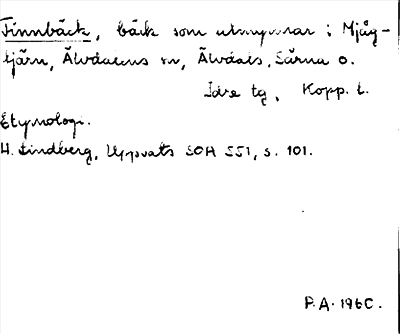 Finnbäck, bäck som utmynnar i Mjåg-
tjärn, Älvdalens sn, Älvdals, Särna o.
Idre tg, Kopp. l.
Etymologi.
H. Lindberg, Uppsats SOH 551, s. 101.
P.A. 1960.